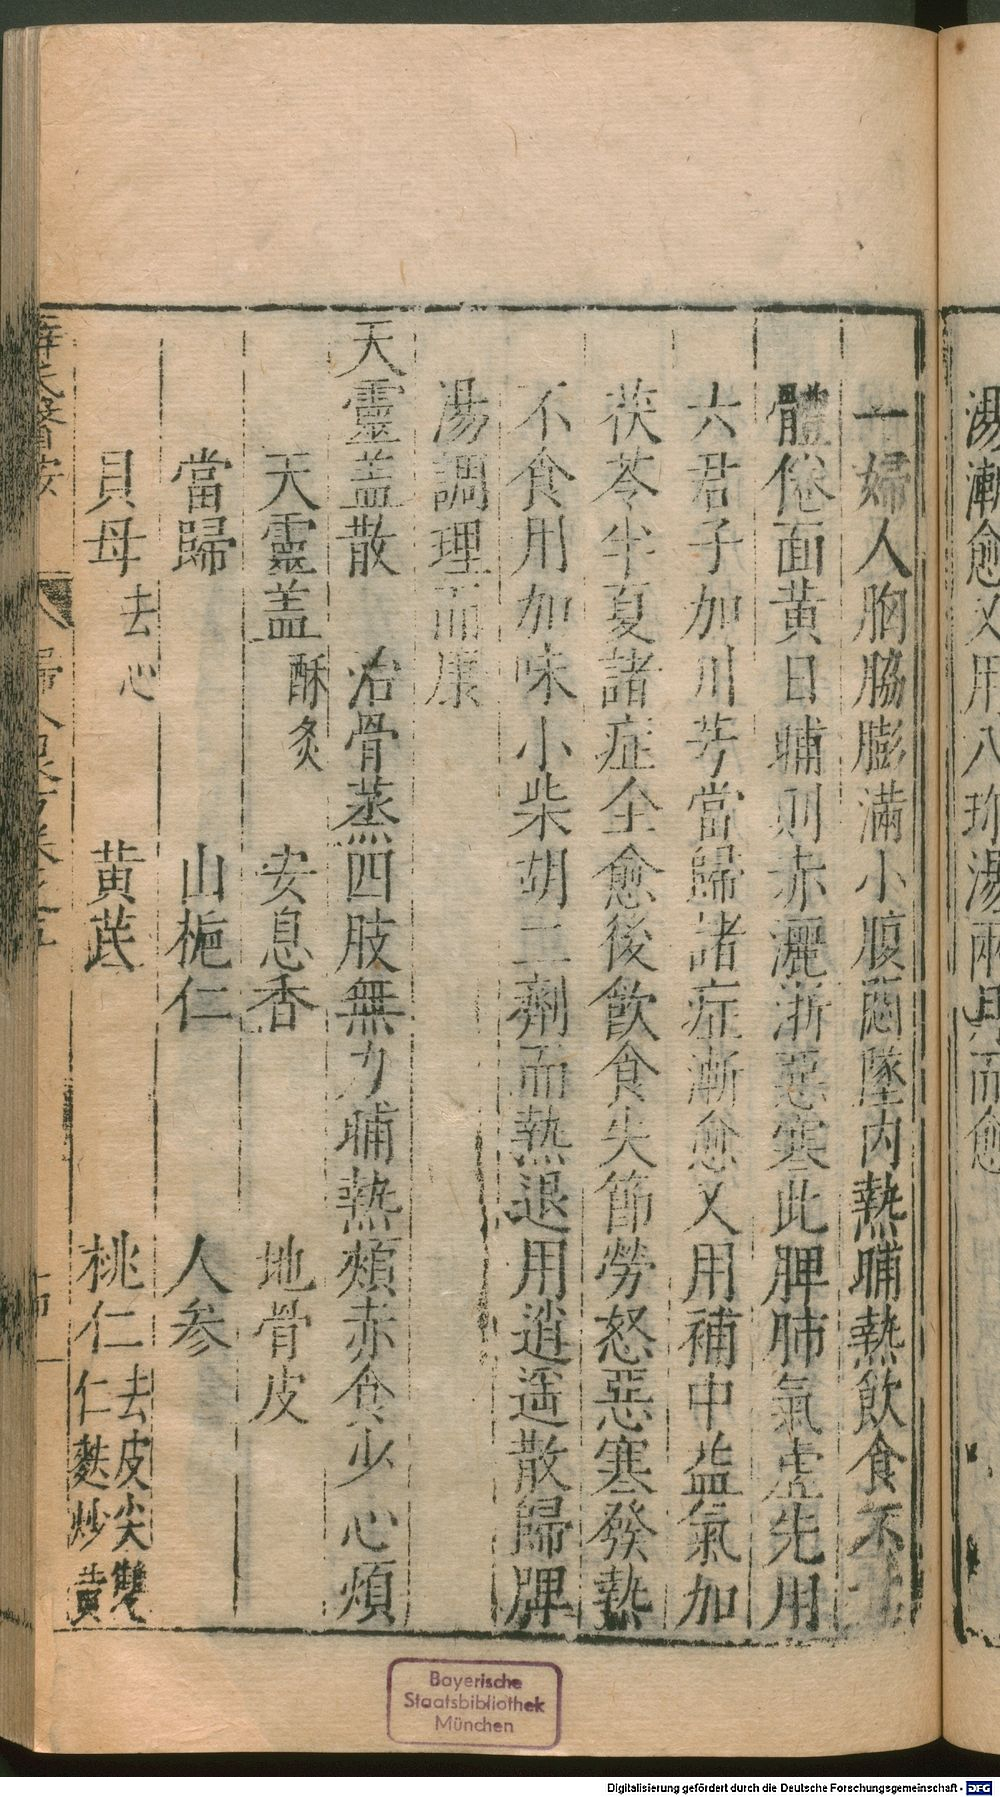 湯漸愈又用八珍湯兩月而愈
一婦人胸脇膨滿小腹悶墜内熱晡熱飲食不
體倦面黄日晡則赤灑淅惡寒此脾肺氣虚先用
六君子加川芎當歸諸症漸愈又用補中益氣加
茯苓半夏諸症全愈後飲食失節勞怒惡寒發熱
不食用加味小柴胡二劑而熱退用逍遥散歸脾
湯調理而康
天靈盖散　治骨蒸四肢無力晡熱頰赤食少心煩
天靈盖酥炙　安息香　地骨皮
當歸　山梔仁　人参
貝母去心　黄芪　桃仁去皮尖雙仁麩炒黄
薛氏醫按　婦人良方卷之五
Bayerische
Staatsbibliothek
München
Digitalisierung gefördert durch die Deutsche Forschungsgemeinschaft - DFG